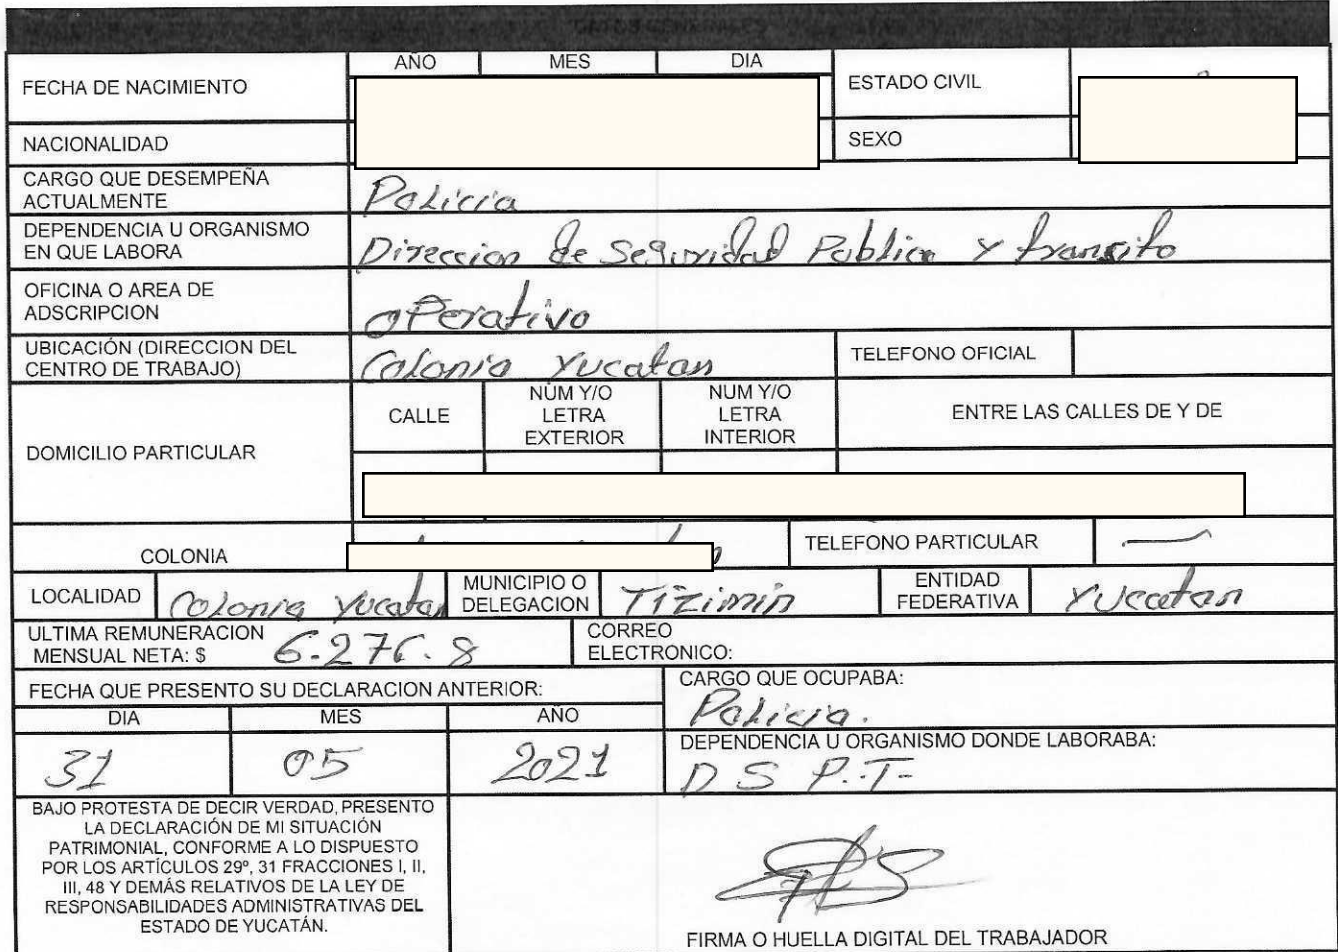 DATOS GENERALES
FECHA DE NACIMIENTO AÑO MES DIA ESTADO CIVIL
NACIONALIDAD SEXO
CARGO QUE DESEMPEÑA
ACTUALMENTE Policia
DEPENDENCIA U ORGANISMO
EN QUE LABORA Direccion de Seguridad Publica y transito
OFICINA O AREA DE
ADSCRIPCION oPerativo
UBICACIÓN (DIRECCION DEL
CENTRO DE TRABAJO) Colonia Yucatan TELEFONO OFICIAL
DOMICILIO PARTICULAR
CALLE
NÚM Y/O
LETRA
EXTERIOR
NUM Y/O
LETRA
INTERIOR
ENTRE LAS CALLES DE Y DE
COLONIA TELEFONO PARTICULAR —
LOCALIDAD Colonia Yucatan
MUNICIPIO O
DELEGACION Tizimin
ENTIDAD
FEDERATIVA Yucatan
ULTIMA REMUNERACION
MENSUAL NETA: $ 6.276.8
CORREO
ELECTRONICO:
FECHA QUE PRESENTO SU DECLARACION ANTERIOR:
DIA MES AÑO
31 05 2021
CARGO QUE OCUPABA:
Policia.
DEPENDENCIA U ORGANISMO DONDE LABORABA:
D S P.T-
BAJO PROTESTA DE DECIR VERDAD, PRESENTO
LA DECLARACIÓN DE MI SITUACIÓN
PATRIMONIAL, CONFORME A LO DISPUESTO
POR LOS ARTÍCULOS 29º, 31 FRACCIONES I, II,
III, 48 Y DEMÁS RELATIVOS DE LA LEY DE
RESPONSABILIDADES ADMINISTRATIVAS DEL
ESTADO DE YUCATÁN.
FIRMA O HUELLA DIGITAL DEL TRABAJADOR